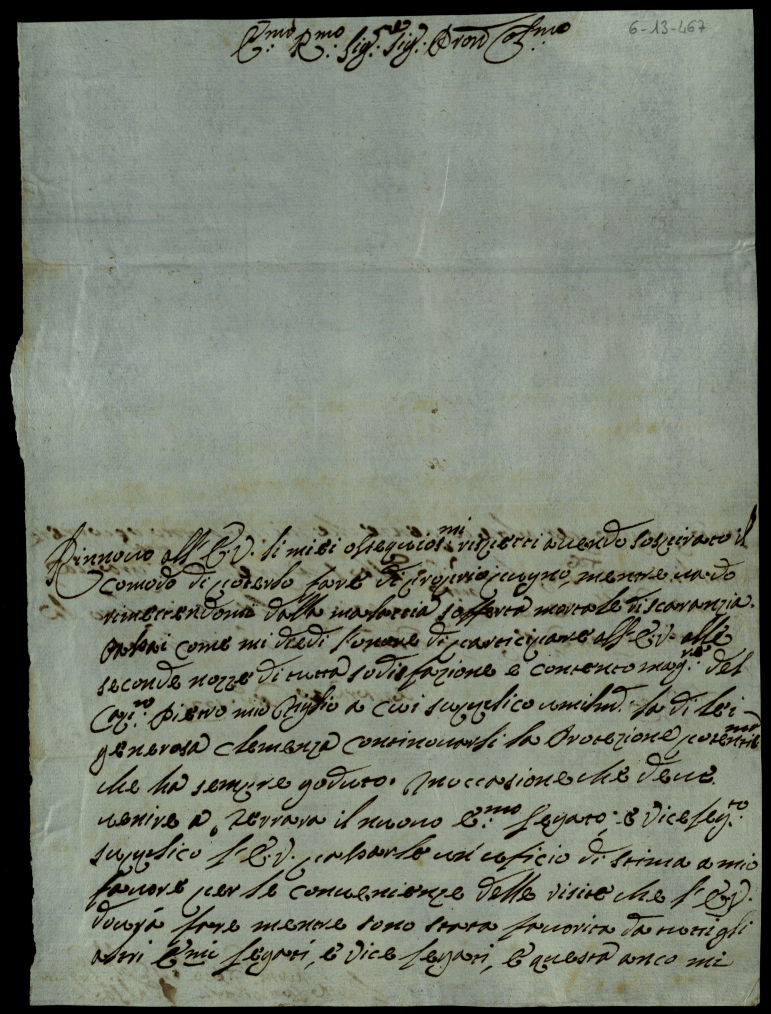 6-13-467
E.mo R.mo Sig.re Sig.re Pron Col.mo
Rinnovo all'E.V. li miei ossequiosi.mi rispetti avendo sospirato il
comodo di poterlo fare di proprio pugno mentre vado
rimettendomi dalla malattia sofferta mortale di scaranzia.
Passai come mi diedi l'onore di participare all'E.V. alle
seconde nozze di tutta sodisfazione e contento mag.re del
Pietro mio Figlio a cui supplico umilmd. la di lei
generosa clemenza continovarli la Protezione potentis.ma
che ha sempre goduto. In occasione che deve
venire a Ferrara il nuovo E.mo Legato, e Vice Leg.to
supplico l'E.V. passarle un uficio di stima a mio
favore per le convenienze delle visite che l'E.V.
dovrà fare mentre sono stata favorita da tutti gli
altri E.mi Legati, e Vice Legati, e questa anco mi